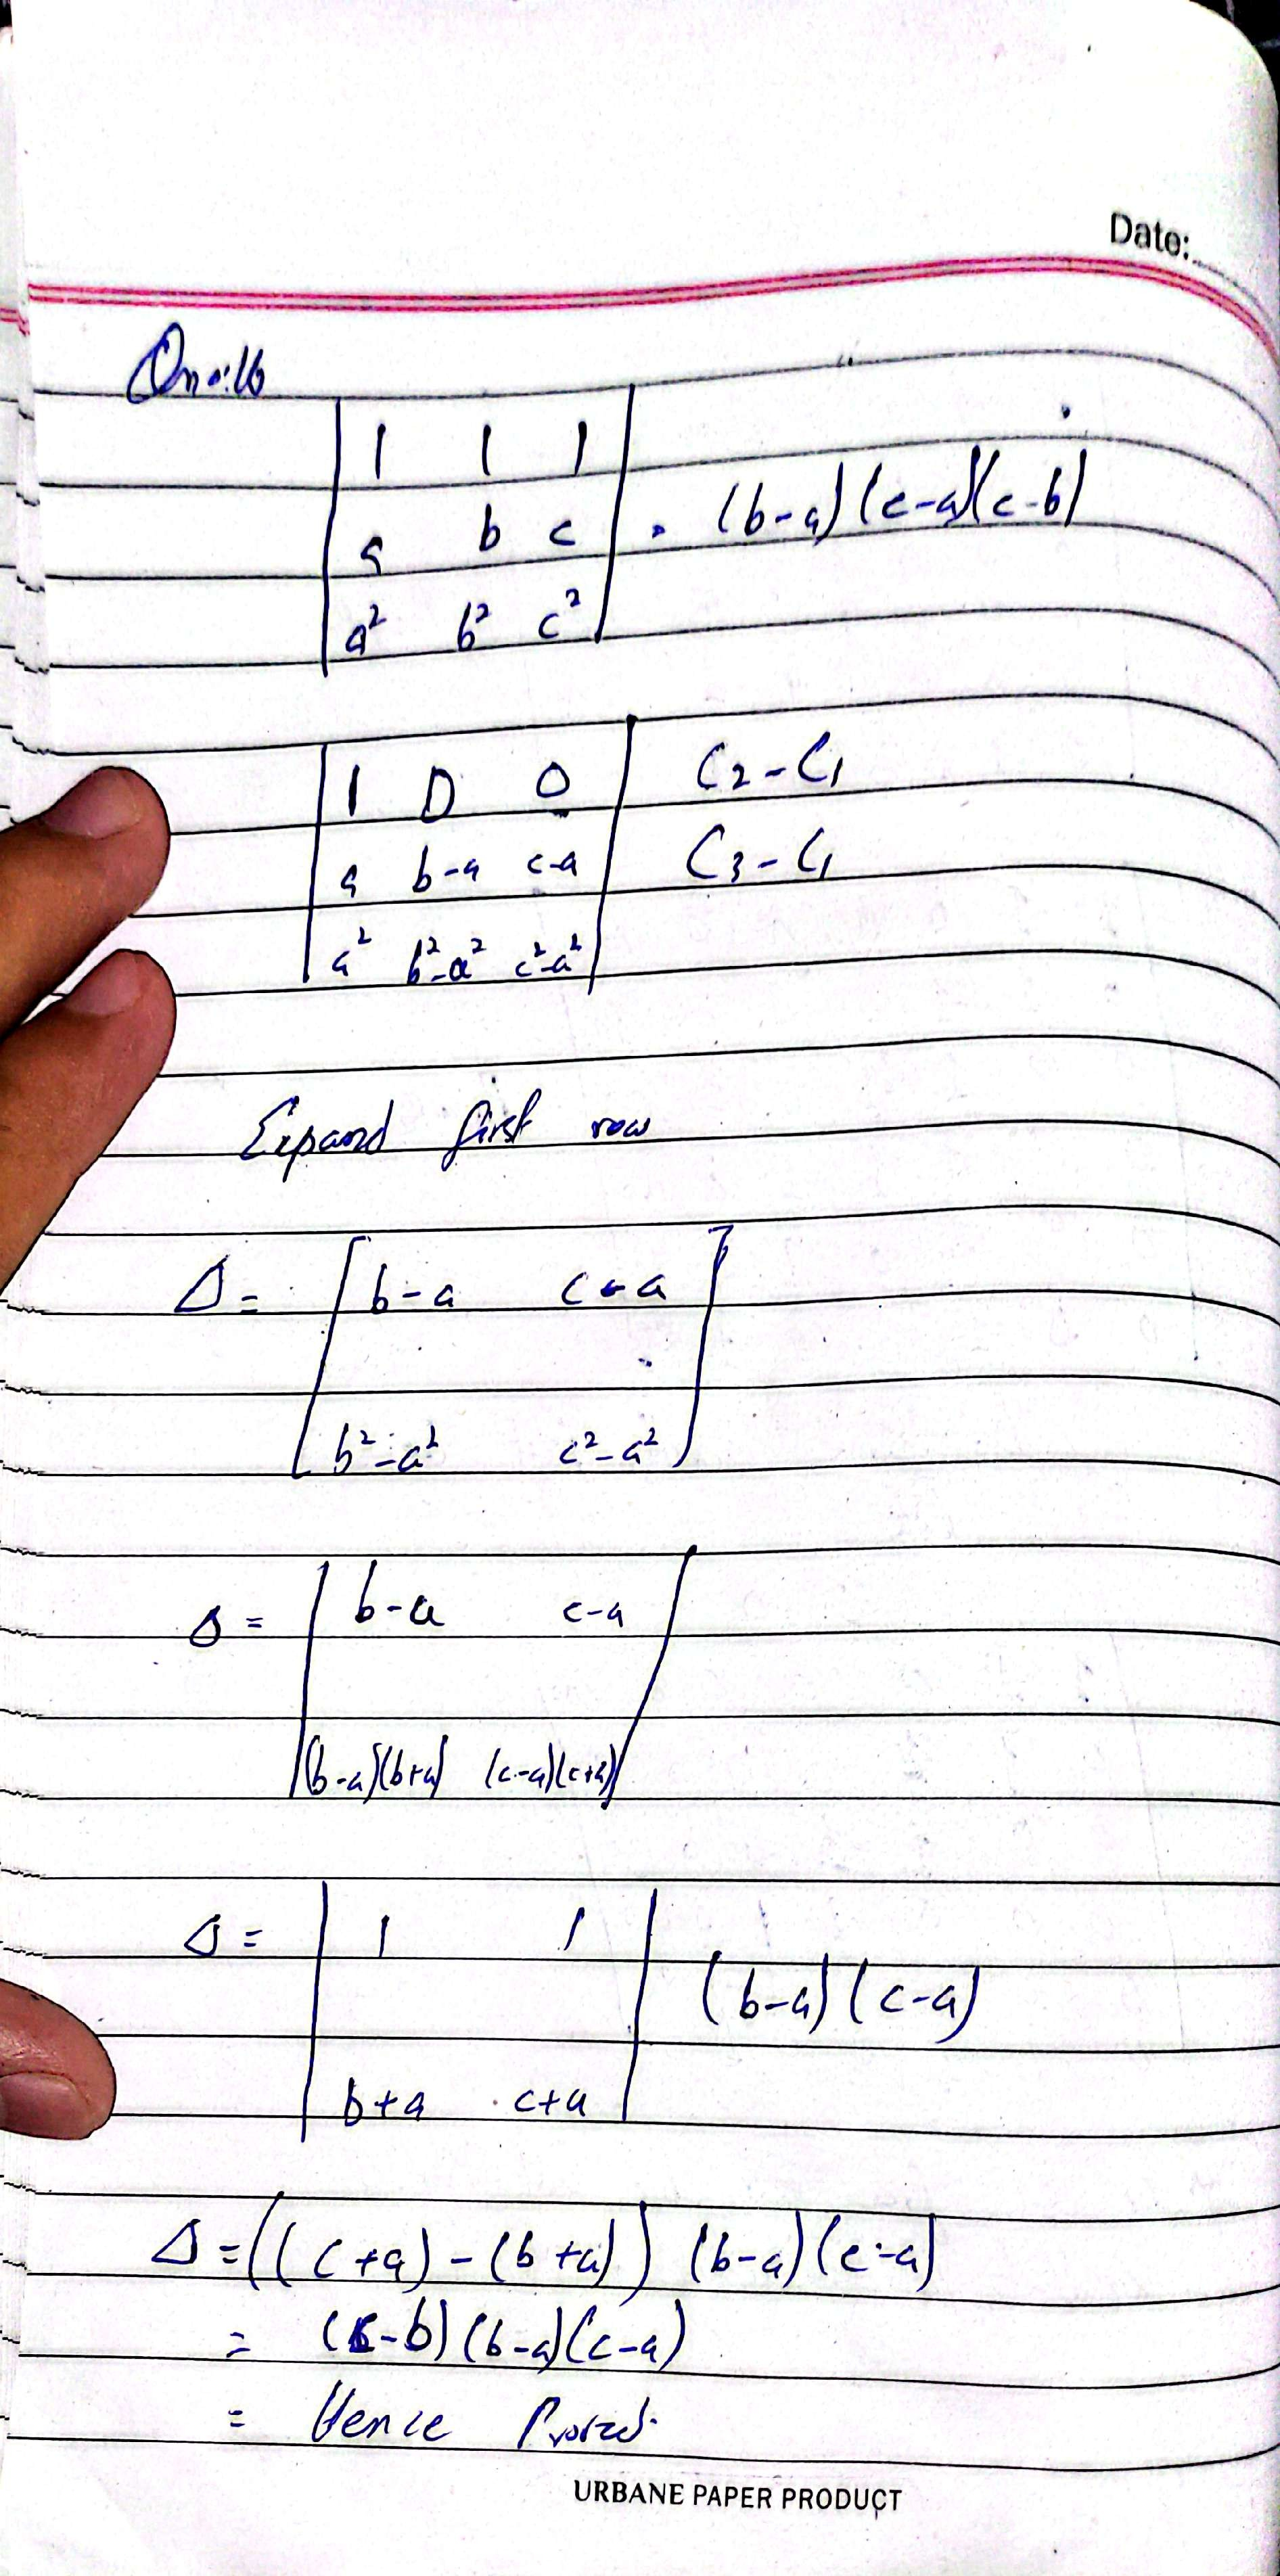 Date:
Qno:16
| 1 1 1 |
| a b c | = (b-a)(c-a)(c-b)
| a² b² c² |
| 1 0 0 | C2-C1
| a b-a c-a | C3-C1
| a² b²-a² c²-a² |
Expand first row
Δ= [ b-a c-a ]
[ b²-a² c²-a² ]
Δ= | b-a c-a |
| (b-a)(b+a) (c-a)(c+a) |
Δ= | 1 1 | (b-a)(c-a)
| b+a c+a |
Δ=((c+a)-(b+a)) (b-a)(c-a)
= (c-b)(b-a)(c-a)
= Hence Proved.
URBANE PAPER PRODUCT